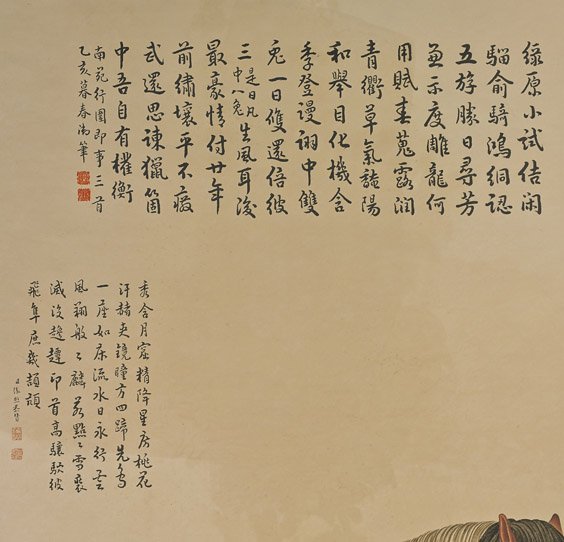 綠原小試佶閑
騮俞騎鴻絅認
五遊勝日尋芳
兼示度雕龍何
用賦春蒐露潤
青衢草氣聽陽
和舉目化機含
季登謾詡中雙
兎一日雙還倍彼
三是日凡中八兎生風耳後
最豪情付廿年
前繡壤平不廢
武還思諫獵箇
中吾自有權衡
南苑行圍即事三首
乙亥暮春御筆
秀含月窟精降星房桃花
汗赭夾鏡瞳方四蹄先
一座如床流水日永行空
風翔般般麟若點點雪裹
滅沒趁趯印首高驤駃彼
飛隼庶幾頡頏